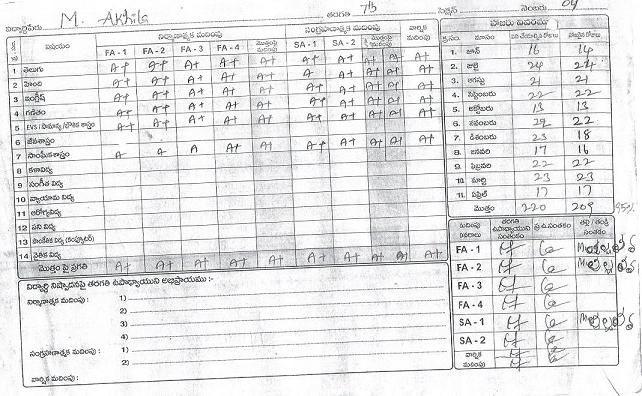 విద్యార్థిపేరు M. Akhila తరగతి 7th సెక్షన్ నెంబరు 04
విషయం నిర్మాణాత్మక మదింపు సంగ్రహణాత్మక మదింపు వార్షిక మదింపు
FA - 1 FA - 2 FA - 3 FA - 4 SA - 1 SA - 2
1 తెలుగు A+ A+ A+ A+ A+ A+ A+ A+ A+ A+
2 హింది A+ A+ A+ A+ A+ A A+ A+ A+ A+
3 ఇంగ్లీష్ A+ A+ A+ A+ A+ A+ A+ A+ A+ A+
4 గణితం A+ A+ A+ A+ A+ A+ A+ A+ A+ A+
5 EVS / సామాన్య / భౌతిక శాస్త్రం A+ A+ A+ A+ A+ A+ A+ A+ A+ A+
6 జీవశాస్త్రం
7 సాంఘికశాస్త్రం A A A A+ A+ A+ A+ A+ A+ A+
8 కళావిద్య
9 సంగీత విద్య
10 వ్యాయామ విద్య
11 ఆరోగ్యవిద్య
12 పని విద్య
13 సాంకేతిక విద్య (కంప్యూటర్)
14 నైతిక విద్య
మొత్తం పై ప్రగతి A+ A+ A+ A+ A+ A+ A+ A+ A+ A+
హాజరు వివరము
క్ర.సం. మాసం పని చేయవల్సిన రోజులు హాజరైన రోజులు
1. జూన్ 16 14
2. జులై 24 24
3. ఆగస్టు 21 21
4. సెప్టెంబరు 22 22
5. అక్టోబరు 13 13
6. నవంబరు 29 22
7. డిశంబరు 23 18
8. జనవరి 17 16
9. ఫిబ్రవరి 22 22
10. మార్చి 23 23
11. ఏప్రిల్ 17 17
మొత్తం 220 209 95%
మదింపు వివరాలు తరగతి ఉపాధ్యాయుని సంతకం ప్ర.ఉ.సంతకం తల్లి / తండ్రి సంతకం
FA - 1
FA - 2
FA - 3
FA - 4
SA - 1
SA - 2
వార్షిక మదింపు
విద్యార్థి నిష్పాదనపై తరగతి ఉపాధ్యాయుని అభిప్రాయము :-
నిర్మాణాత్మక మదింపు : 1)
2)
3)
4)
సంగ్రహణాత్మక మదింపు : 1)
2)
వార్షిక మదింపు :